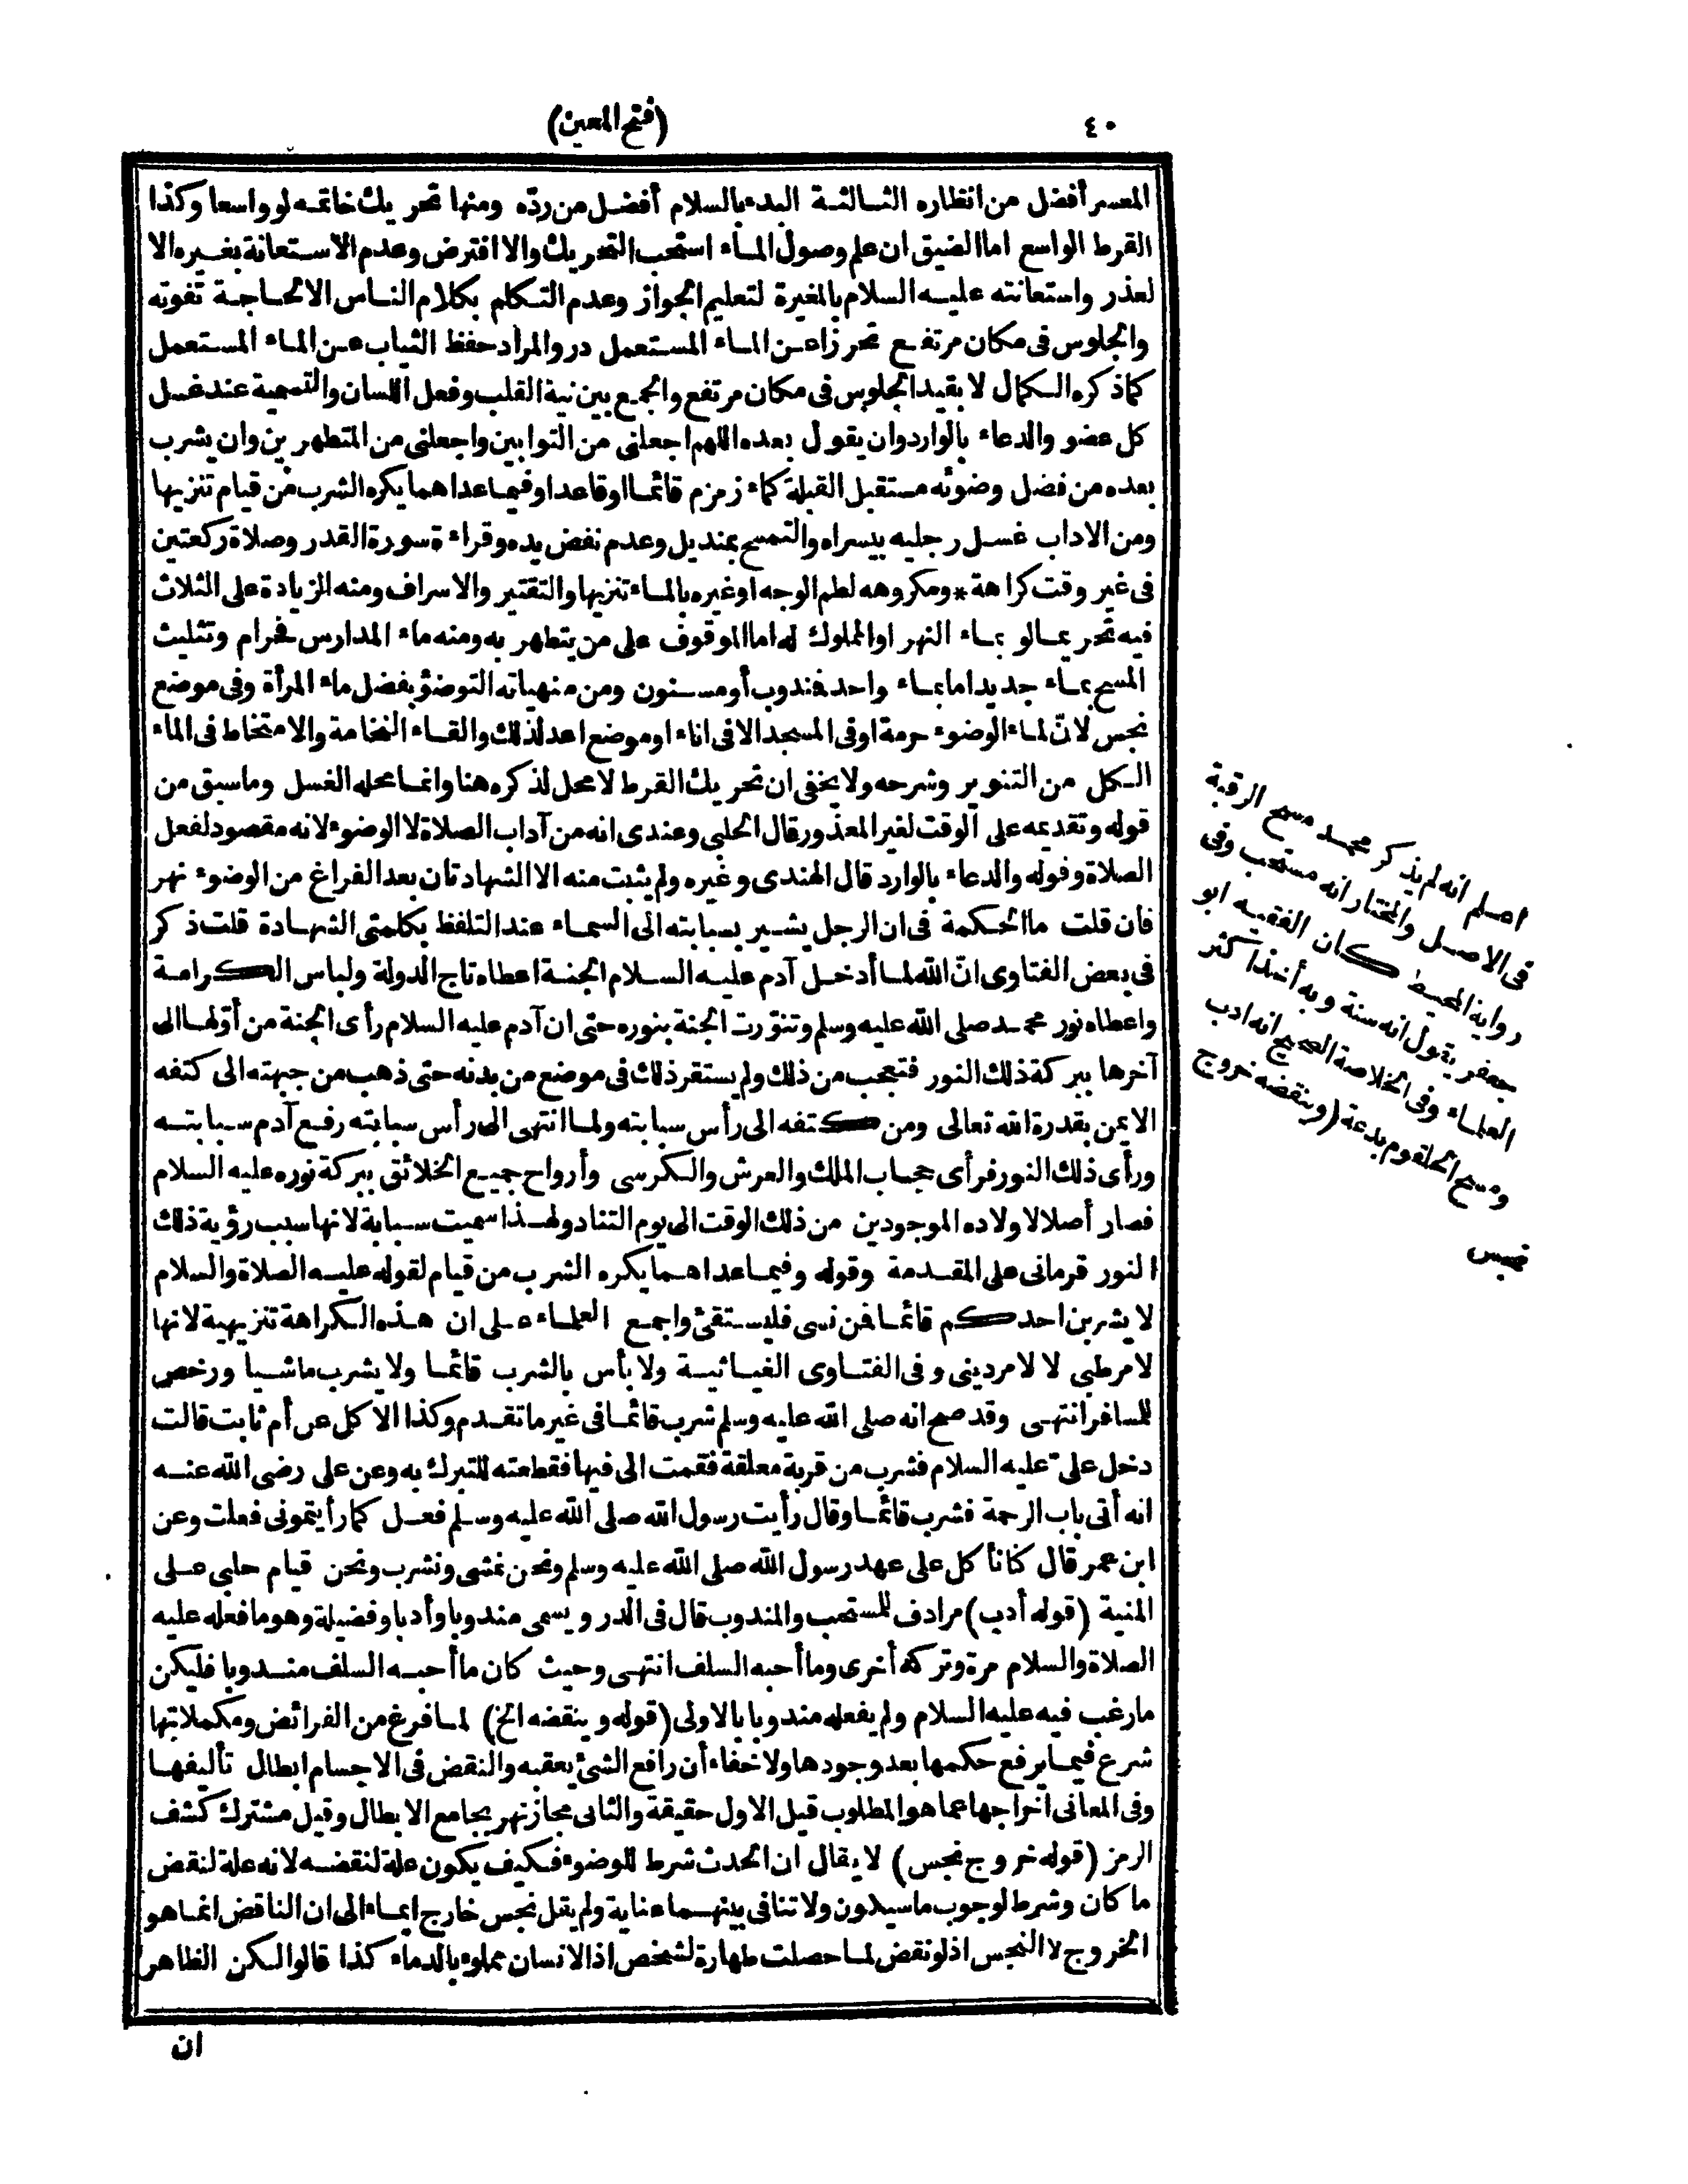 ٤٠
(فتح المعين)
المعسر أفضل من انظاره الثالثة البدء بالسلام أفضل من ردّه ومنها تحريك خاتمه لو واسعا وكذا
القرط الواسع اما الضيق ان علم وصول الماء استحب التحريك والا افترض وعدم الاستعانة بغيره الا
لعذر واستعانته عليه السلام بالمغيرة لتعليم الجواز وعدم التكلم بكلام الناس الا لحاجة تفوته
والجلوس فى مكان مرتفع تحرزا عن الماء المستعمل در والمراد حفظ الثياب عن الماء المستعمل
كما ذكره الكمال لا بقيد الجلوس فى مكان مرتفع والجمع بين نية القلب وفعل اللسان والتسمية عند غسل
كل عضو والدعاء بالوارد وان يقول بعده اللهم اجعلنى من التوابين واجعلنى من المتطهرين وان يشرب
بعده من فضل وضوئه مستقبل القبلة كماء زمزم قائما او قاعدا وفيما عداهما يكره الشرب من قيام تنزيها
ومن الاداب غسل رجليه بيسراه والتمسح بمنديل وعدم نفض يده وقراءة سورة القدر وصلاة ركعتين
فى غير وقت كراهة * ومكروهه لطم الوجه او غيره بالماء تنزيها والتقتير والاسراف ومنه الزيادة على الثلاث
فيه تحريما لو بماء النهر او المملوك له اما الموقوف على من يتطهر به ومنه ماء المدارس فحرام وتثليث
المسح بماء جديد اما بماء واحد فمندوب أو مسنون ومن منهياته التوضؤ بفضل ماء المرأة وفى موضع
نجس لانّ لماء الوضوء حرمة او فى المسجد الا فى اناء او موضع اعد لذلك والقاء النخامة والامتخاط فى الماء
الكل من التنوير وشرحه ولا يخفى ان تحريك القرط لا محل لذكره هنا وانما محله الغسل وما سبق من
قوله وتقديمه على الوقت لغير المعذور قال الحلبى وعندى انه من آداب الصلاة لا الوضوء لانه مقصود لفعل
الصلاة وقوله والدعاء بالوارد قال الهندى وغيره ولم يثبت منه الا الشهادتان بعد الفراغ من الوضوء نهر
فان قلت ما الحكمة فى ان الرجل يشير بسبابته الى السماء عند التلفظ بكلمتى الشهادة قلت ذكر
فى بعض الفتاوى انّ الله لما أدخل آدم عليه السلام الجنة اعطاه تاج الدولة ولباس الكرامة
واعطاه نور محمد صلى الله عليه وسلم وتنوّرت الجنة بنوره حتى ان آدم عليه السلام رأى الجنة من أوّلها الى
آخرها ببركة ذلك النور فتعجب من ذلك ولم يستقر ذلك فى موضع من بدنه حتى ذهب من جبهته الى كتفه
الايمن بقدرة الله تعالى ومن كتفه الى رأس سبابته ولما انتهى الى رأس سبابته رفع آدم سبابته
ورأى ذلك النور فرأى حجاب الملك والعرش والكرسى وأرواح جميع الخلائق ببركة نوره عليه السلام
فصار أصلا لاولاده الموجودين من ذلك الوقت الى يوم التناد ولهذا سميت سبابة لانها سبب رؤية ذلك
النور قرمانى على المقدمة وقوله وفيما عداهما يكره الشرب من قيام لقوله عليه الصلاة والسلام
لا يشربن احدكم قائما فمن نسى فليستقئ واجمع العلماء على ان هذه الكراهة تنزيهية لانها
لامر طبى لا لامر دينى وفى الفتاوى الغياثية ولا بأس بالشرب قائما ولا يشرب ماشيا ورخص
للمسافر انتهى وقد صح انه صلى الله عليه وسلم شرب قائما فى غير ما تقدم وكذا الاكل عن أم ثابت قالت
دخل علىّ عليه السلام فشرب من قربة معلقة فقمت الى فيها فقطعته للتبرك به وعن على رضى الله عنه
انه أتى باب الرحبة فشرب قائما وقال رأيت رسول الله صلى الله عليه وسلم فعل كما رأيتمونى فعلت وعن
ابن عمر قال كنا نأكل على عهد رسول الله صلى الله عليه وسلم ونحن نمشى ونشرب ونحن قيام حلبى على
المنية (قوله أدب) مرادف للمستحب والمندوب قال فى الدر ويسمى مندوبا وأدبا وفضيلة وهو ما فعله عليه
الصلاة والسلام مرة وتركه أخرى وما أحبه السلف انتهى وحيث كان ما أحبه السلف مندوبا فليكن
ما رغب فيه عليه السلام ولم يفعله مندوبا بالاولى (قوله وينقضه الخ) لما فرغ من الفرائض ومكملاتها
شرع فيما يرفع حكمها بعد وجودها ولا خفاء أن رافع الشئ يعقبه والنقض فى الاجسام ابطال تأليفها
وفى المعانى اخراجها عما هو المطلوب قيل الاول حقيقة والثانى مجاز نهر بجامع الابطال وقيل مشترك كشف
الرمز (قوله خروج نجس) لا يقال ان الحدث شرط للوضوء فكيف يكون علة لنقضه لانه علة لنقض
ما كان وشرط لوجوب ما سيكون ولا تنافى بينهما عناية ولم يقل نجس خارج ايماء الى ان الناقض انما هو
الخروج لا النجس اذ لو نقض لما حصلت طهارة لشخص اذ الانسان مملوء بالدماء كذا قالوا لكن الظاهر
ان
اعلم انه لم يذكر محمد مسح الرقبة
فى الاصل والمختار انه مستحب وفى
رواية المحيط كان الفقيه ابو
جعفر يقول انه سنة وبه أخذ اكثر
العلماء وفى الخلاصة الصحيح انه ادب
ومسح الحلقوم بدعة (وينقضه خروج
نجس